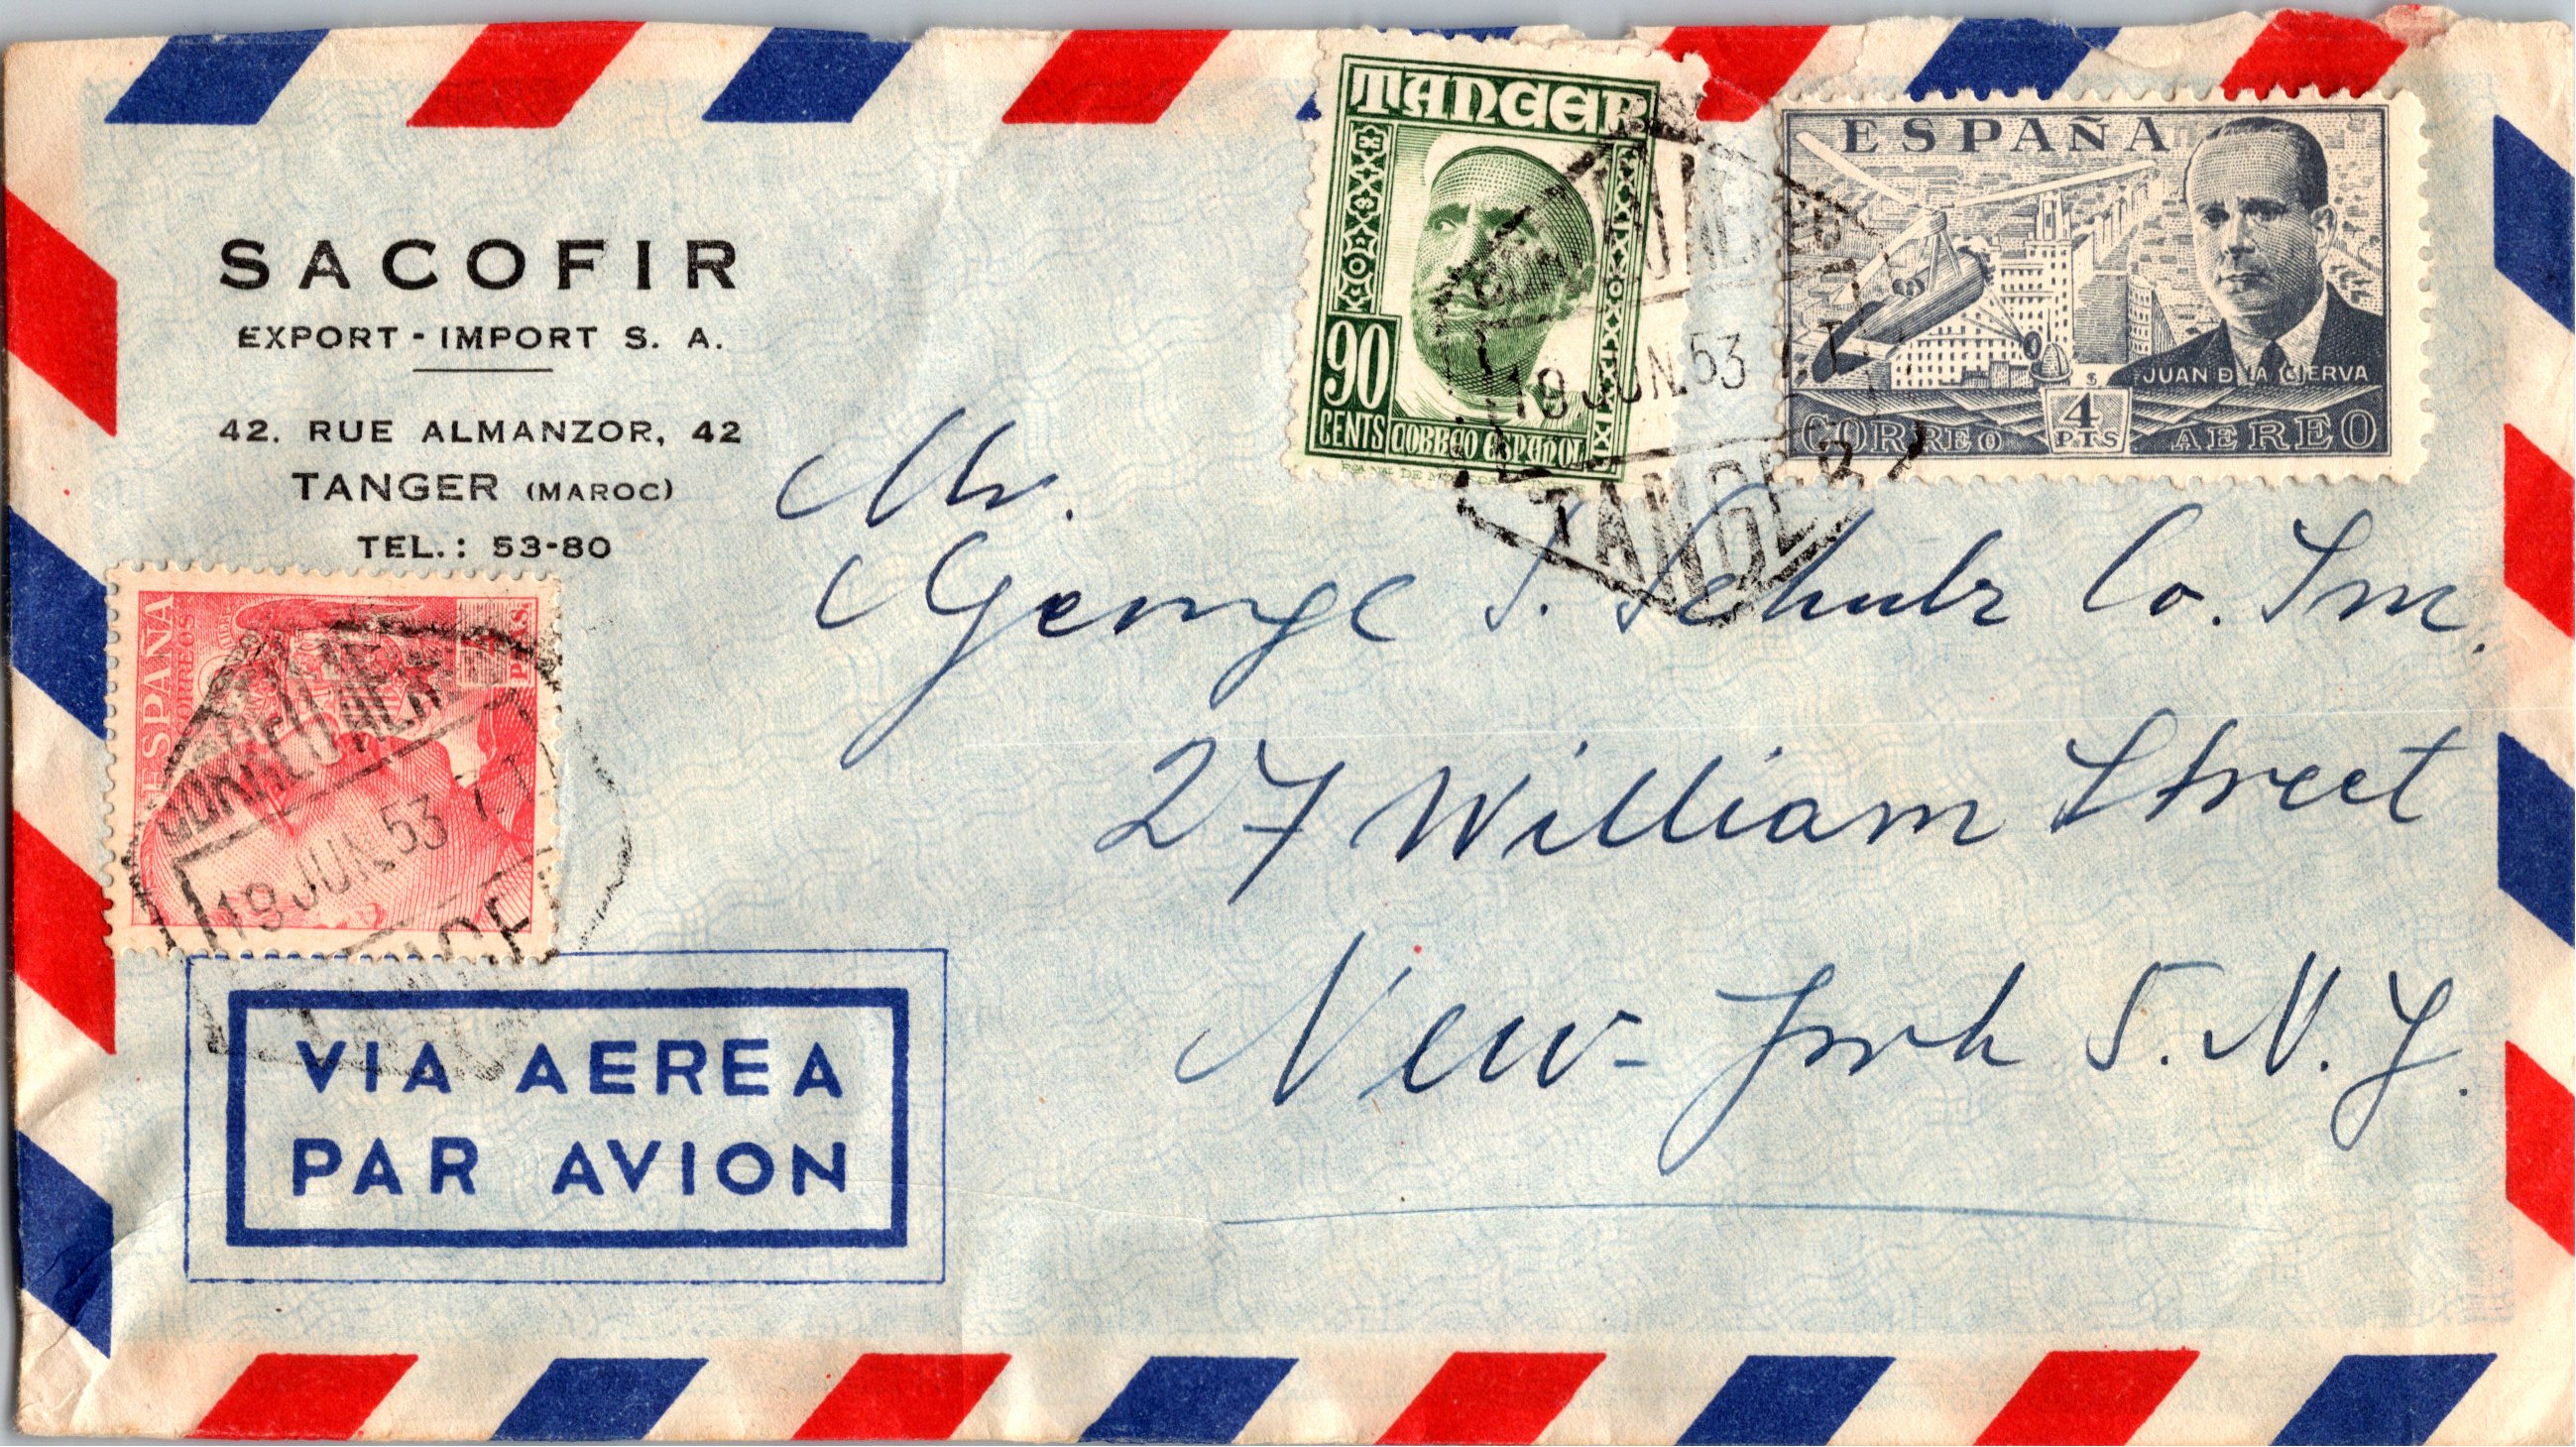 SACOFIR
EXPORT - IMPORT S. A.
42, RUE ALMANZOR, 42
TANGER (MAROC)
TEL.: 53-80
TANGER
90
CENTS
CORREO ESPAÑOL
ESPAÑA
JUAN DE LA CIERVA
4
PTS
CORREO AEREO
CORREO AEREO
19 JUN. 53 7.T
TANGER
Mr.
George S. Schulz Co. Inc.
27 William Street
New-York 5. N. Y.
ESPAÑA
CORREOS
CORREO AEREO
19 JUN. 53 7.T
TANGER
VIA AEREA
PAR AVION